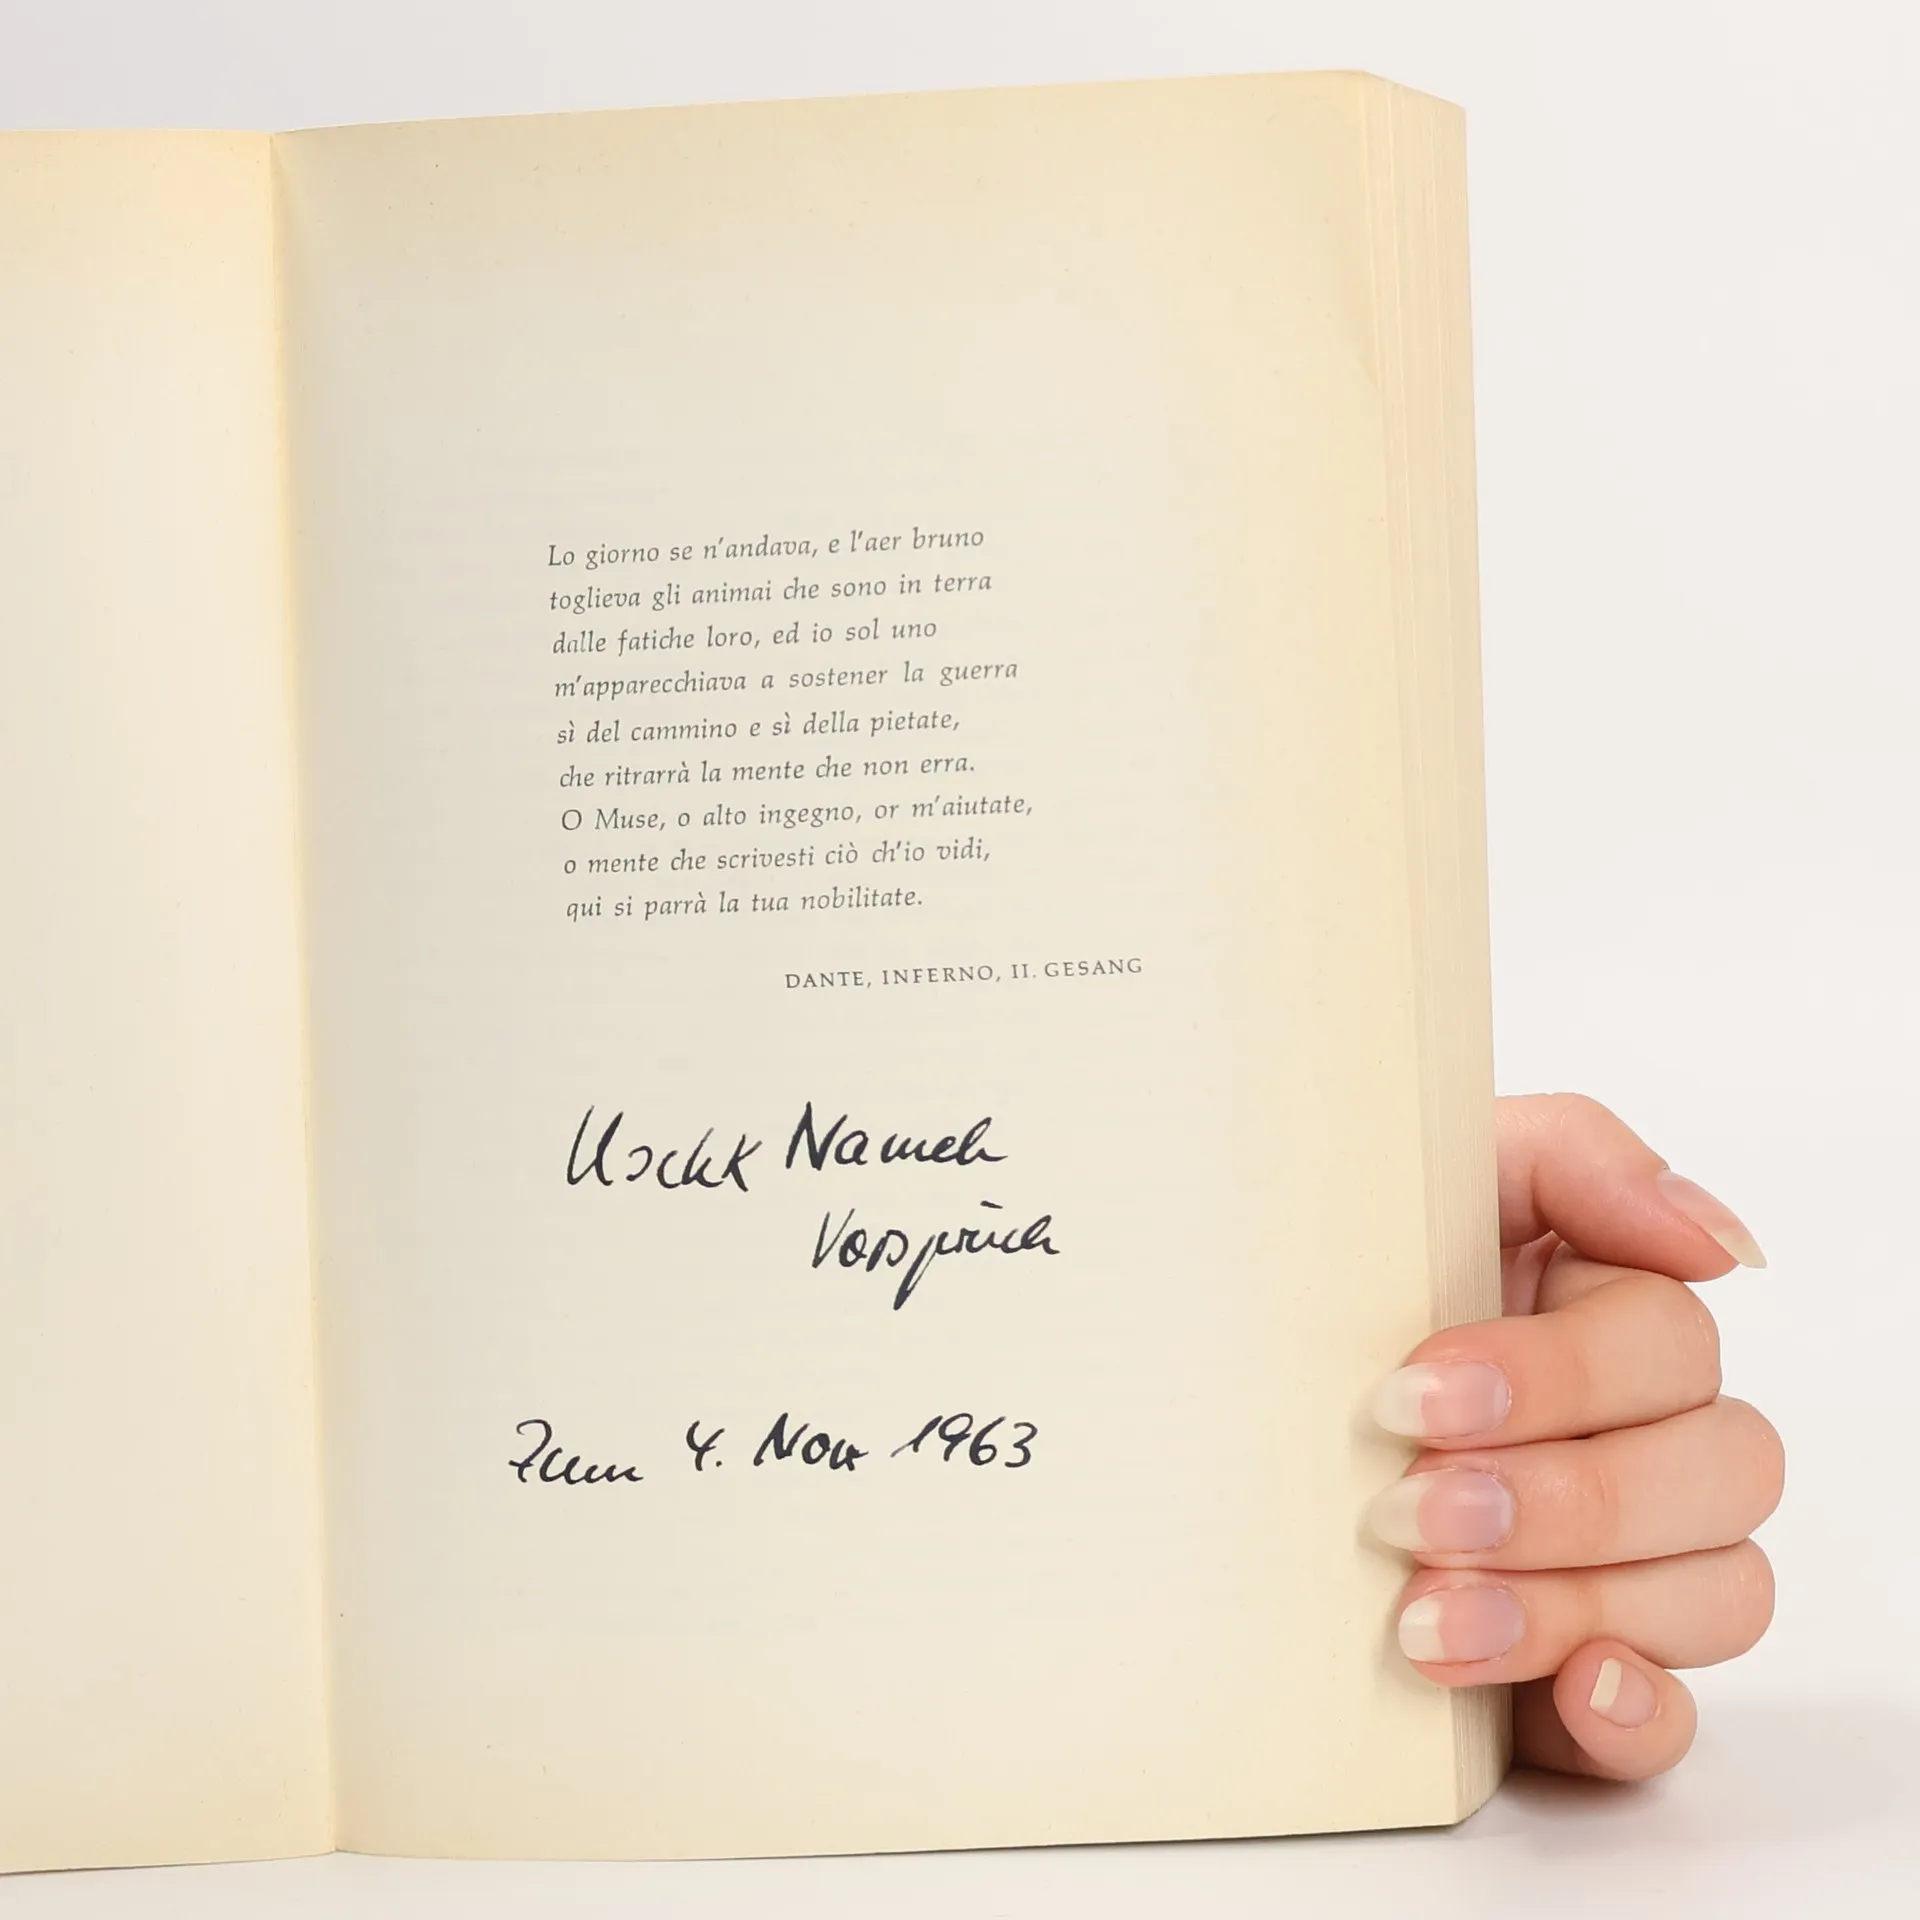 Lo giorno se n'andava, e l'aer bruno
toglieva gli animai che sono in terra
dalle fatiche loro, ed io sol uno
m'apparecchiava a sostener la guerra
sì del cammino e sì della pietate,
che ritrarrà la mente che non erra.
O Muse, o alto ingegno, or m'aiutate,
o mente che scrivesti ciò ch'io vidi,
qui si parrà la tua nobilitate.
DANTE, INFERNO, II. GESANG
Zum 4. Nov 1963